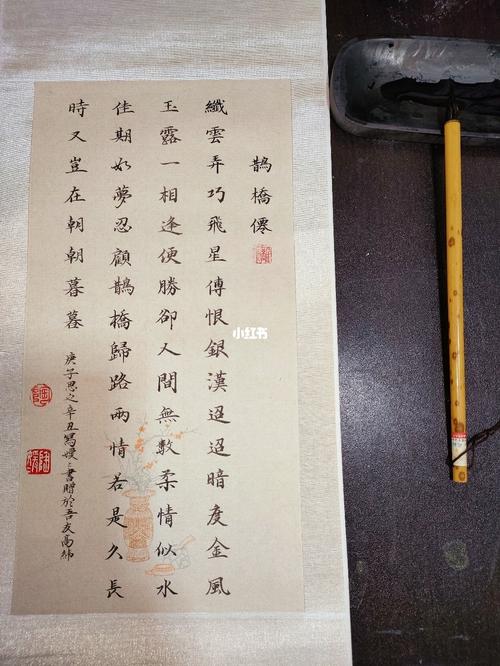 鵲橋僊
纖雲弄巧飛星傳恨銀漢迢迢暗度金風
玉露一相逢便勝卻人間無數柔情似水
佳期如夢忍顧鵲橋歸路兩情若是久長
時又豈在朝朝暮暮
庚子思之辛丑寫嫚〻書贈於吾友高
小红书